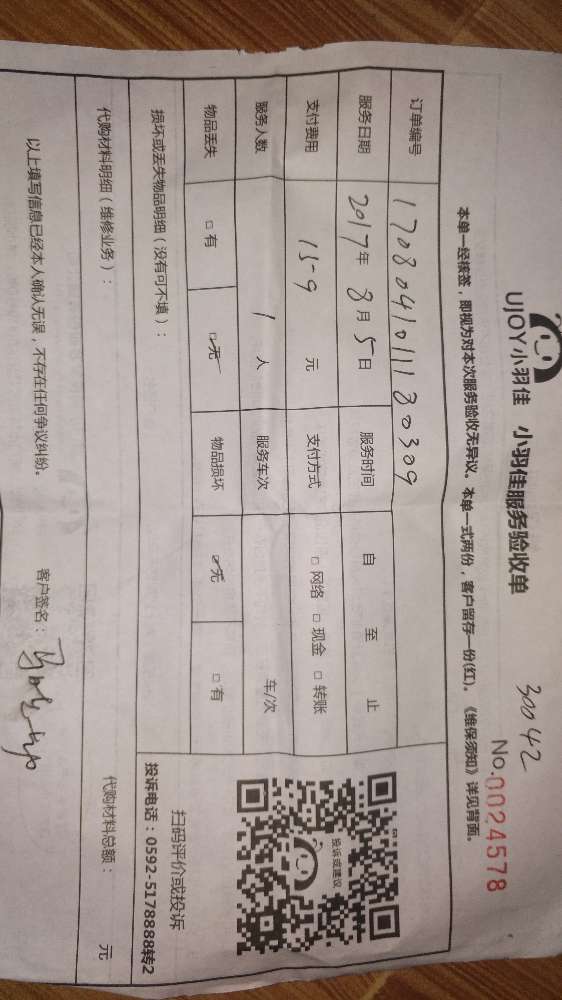 UJOY小羽佳 小羽佳服务验收单
30042
No.0024578
本单一经核签，即视为对本次服务验收无异议。本单一式两份，客户留存一份(红)。《维保须知》详见背面。
订单编号 1708041011180309
服务日期 2017年 8月 5日 服务时间 自 至 止
支付费用 159 元 支付方式 □ 网络 □ 现金 □ 转账
服务人数 1 人 服务车次 车/次
物品丢失 □ 有 □ 无 物品损坏 □ 无 □ 有
损坏或丢失物品明细（没有可不填）：
代购材料明细（维修业务）：
代购材料总额： 元
以上填写信息已经本人确认无误，不存在任何争议纠纷。
客户签名：
投诉或建议
扫码评价或投诉
投诉电话：0592-5178888转2